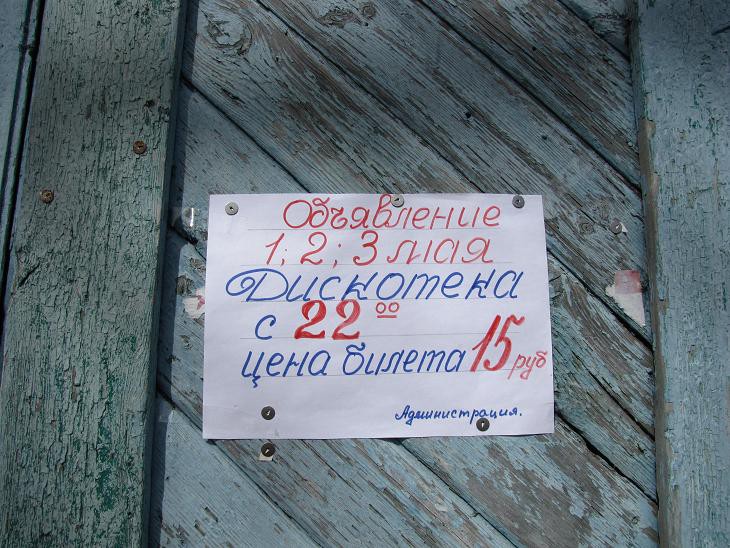 Объявление
1; 2; 3 мая
Дискотека
с 22 00
цена билета 15 руб
Администрация.